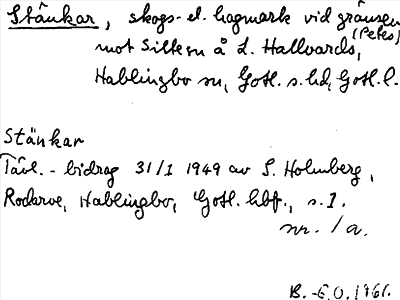 Stänkar, skogs- el. hagmark vid gränsen
(Petes)
mot Siltern å L. Hallvards,
Hablingbo sn, Gotl. s. hd, Gotl. l.
Stänkar
Tävl.-bidrag 31/1 1949 av S. Holmberg,
Rodarve, Hablingbo, Gotl. hbf., s. 1.
nr. 1a.
B. 1961.